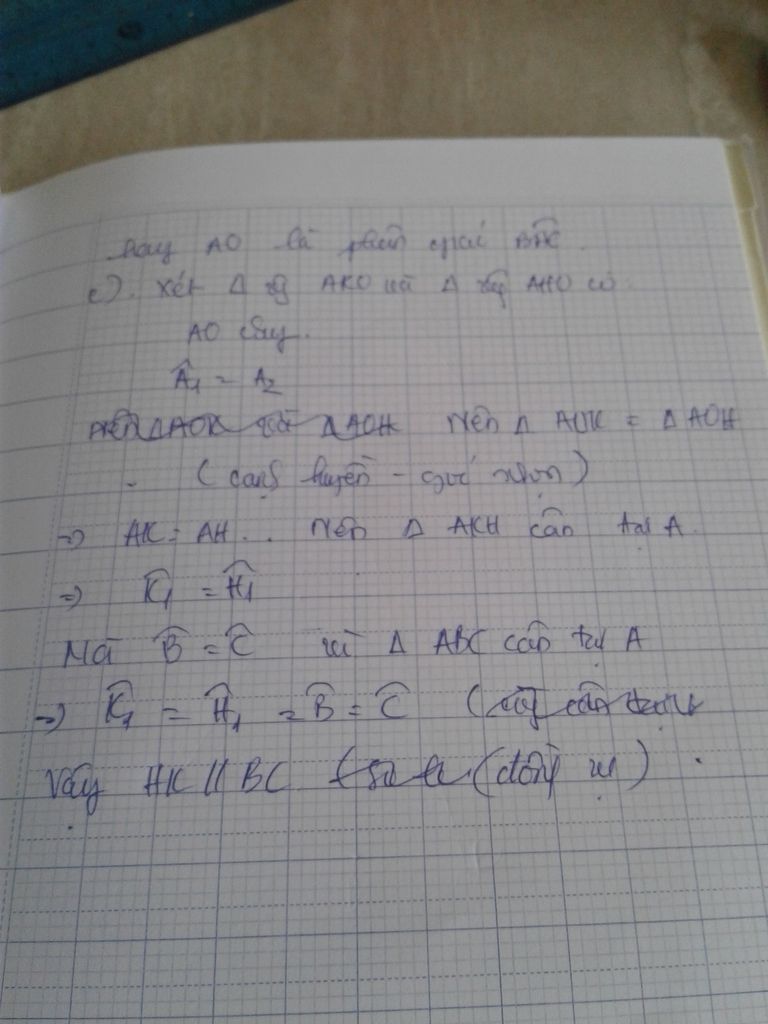 hay AO là phân giác BÂC
c). Xét Δ vg AKO và Δ vg AHO có:
AO chung.
Â₁ = A₂
Nên Δ AOK = Δ AOH
(cạnh huyền - góc nhọn)
=> AK = AH... Nên Δ AKH cân tại A.
=> K̂₁ = Ĥ₁
Mà B̂ = Ĉ vì Δ ABC cân tại A
=> K̂₁ = Ĥ₁ = B̂ = Ĉ
Vậy HK // BC (đồng vị).